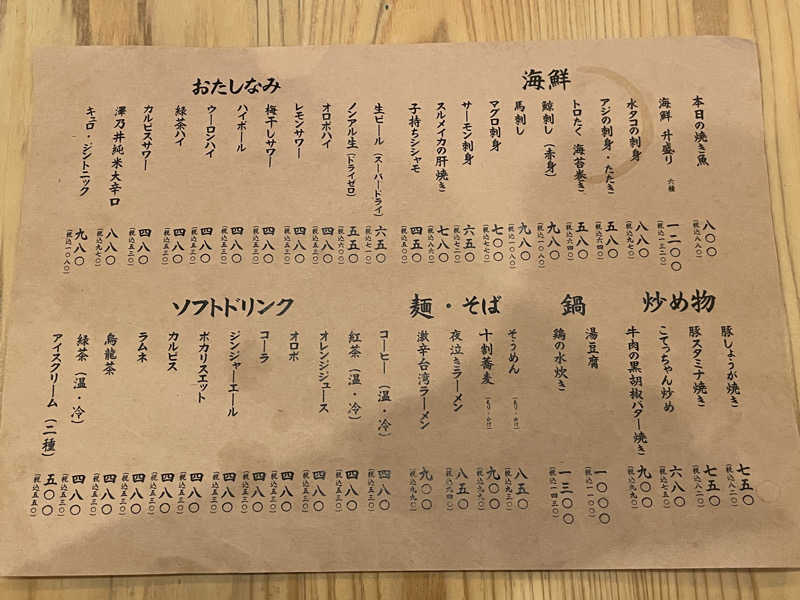 海鮮
本日の焼き魚 八〇〇 (税込八八〇)
海鮮 升盛り 六種 一二〇〇 (税込一三二〇)
水タコの刺身 八八〇 (税込九七〇)
アジの刺身・たたき 五八〇 (税込六四〇)
トロたく 海苔巻き 五八〇 (税込六四〇)
鯨刺し(赤身) 九八〇 (税込一〇八〇)
馬刺し 九八〇 (税込一〇八〇)
マグロ刺身 七〇〇 (税込七七〇)
サーモン刺身 六五〇 (税込七二〇)
スルメイカの肝焼き 七八〇 (税込八六〇)
子持ちシシャモ 四五〇 (税込五〇〇)
おたしなみ
生ビール (スーパードライ) 六五〇 (税込七一〇)
ノンアル生 (ドライゼロ) 五五〇 (税込六〇〇)
オロポハイ 四八〇 (税込五三〇)
レモンサワー 四八〇 (税込五三〇)
梅干しサワー 四八〇 (税込五三〇)
ハイボール 四八〇 (税込五三〇)
ウーロンハイ 四八〇 (税込五三〇)
緑茶ハイ 四八〇 (税込五三〇)
カルピスサワー 四八〇 (税込五三〇)
澤乃井純米大辛口 八八〇 (税込九七〇)
キュロ・ジントニック 九八〇 (税込一〇八〇)
炒め物
豚しょうが焼き 七五〇 (税込八二〇)
豚スタミナ焼き 七五〇 (税込八二〇)
こてっちゃん炒め 六八〇 (税込七五〇)
牛肉の黒胡椒バター焼き 九〇〇 (税込九九〇)
鍋
湯豆腐 一〇〇〇 (税込一一〇〇)
鶏の水炊き 一三〇〇 (税込一四三〇)
麺・そば
そうめん (もり・かけ) 八五〇 (税込九三〇)
十割蕎麦 (もり・かけ) 九〇〇 (税込九九〇)
夜泣きラーメン 八五〇 (税込九四〇)
激辛台湾ラーメン 九〇〇 (税込九九〇)
ソフトドリンク
コーヒー (温・冷) 四八〇 (税込五三〇)
紅茶 (温・冷) 四八〇 (税込五三〇)
オレンジジュース 四八〇 (税込五三〇)
オロポ 四八〇 (税込五三〇)
コーラ 四八〇 (税込五三〇)
ジンジャーエール 四八〇 (税込五三〇)
ポカリスエット 四八〇 (税込五三〇)
カルピス 四八〇 (税込五三〇)
ラムネ 四八〇 (税込五三〇)
烏龍茶 四八〇 (税込五三〇)
緑茶 (温・冷) 四八〇 (税込五三〇)
アイスクリーム (二種) 五〇〇 (税込五五〇)